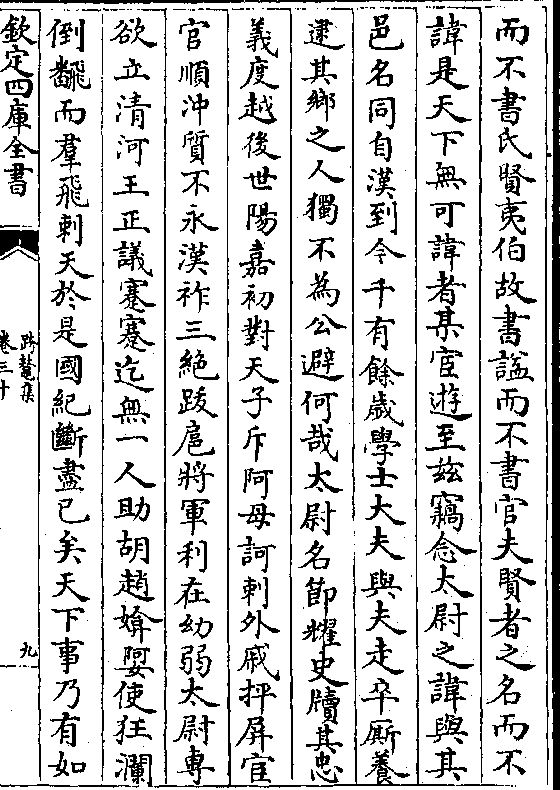 而不書氏賢夷伯故書諡而不書官夫賢者之名而不
諱是天下無可諱者某宦遊至兹竊念太尉之諱與其
邑名同自漢到今千有餘歲學士大夫與夫走卒厮養
逮其鄉之人獨不為公避何哉太尉名節耀史牘其忠
義度越後世陽嘉初對天子斥阿母訶刺外戚抨屏宦
官順沖質不永漢祚三絶跋扈將軍利在幼弱太尉專
欲立清河王正議蹇蹇迄無一人助胡趙媕娿使狂瀾
倒飜而羣飛刺天於是國紀斷盡已矣天下事乃有如
欽定四庫全書
跨鼇集
卷三十
九